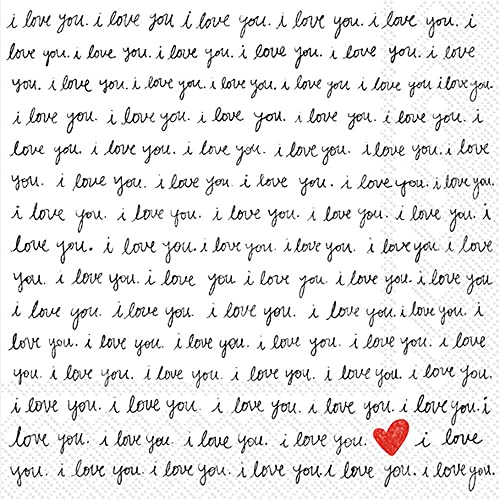 i love you. i love you i love you. i love you. i love you. i
love you. i love you. i love you. i love you. i love you. i love
you. i love you. i love you. i love you. i love you i love you i love you.
i love you. i love you. i love you. i love you. i love you. i
love you. i love you. i love you. i love you. i love you. i love
you. i love you. i love you. i love you. i love you. i love you.
i love you. i love you. i love you. i love you. i love you. i
love you. i love you. i love you. i love you. i love you i love
you. i love you. i love you i love you. i love you. i love you
i love you. i love you. i love you. i love you. i love you. i
love you. i love you. i love you. i love you. i love you. i love
you. i love you. i love you. i love you. i love you. i love you.
i love you. i love you. i love you. i love you. i love you. i
love you. i love you. i love you. i love you. i love
you. i love you. i love you. i love you. i love you. i love you.